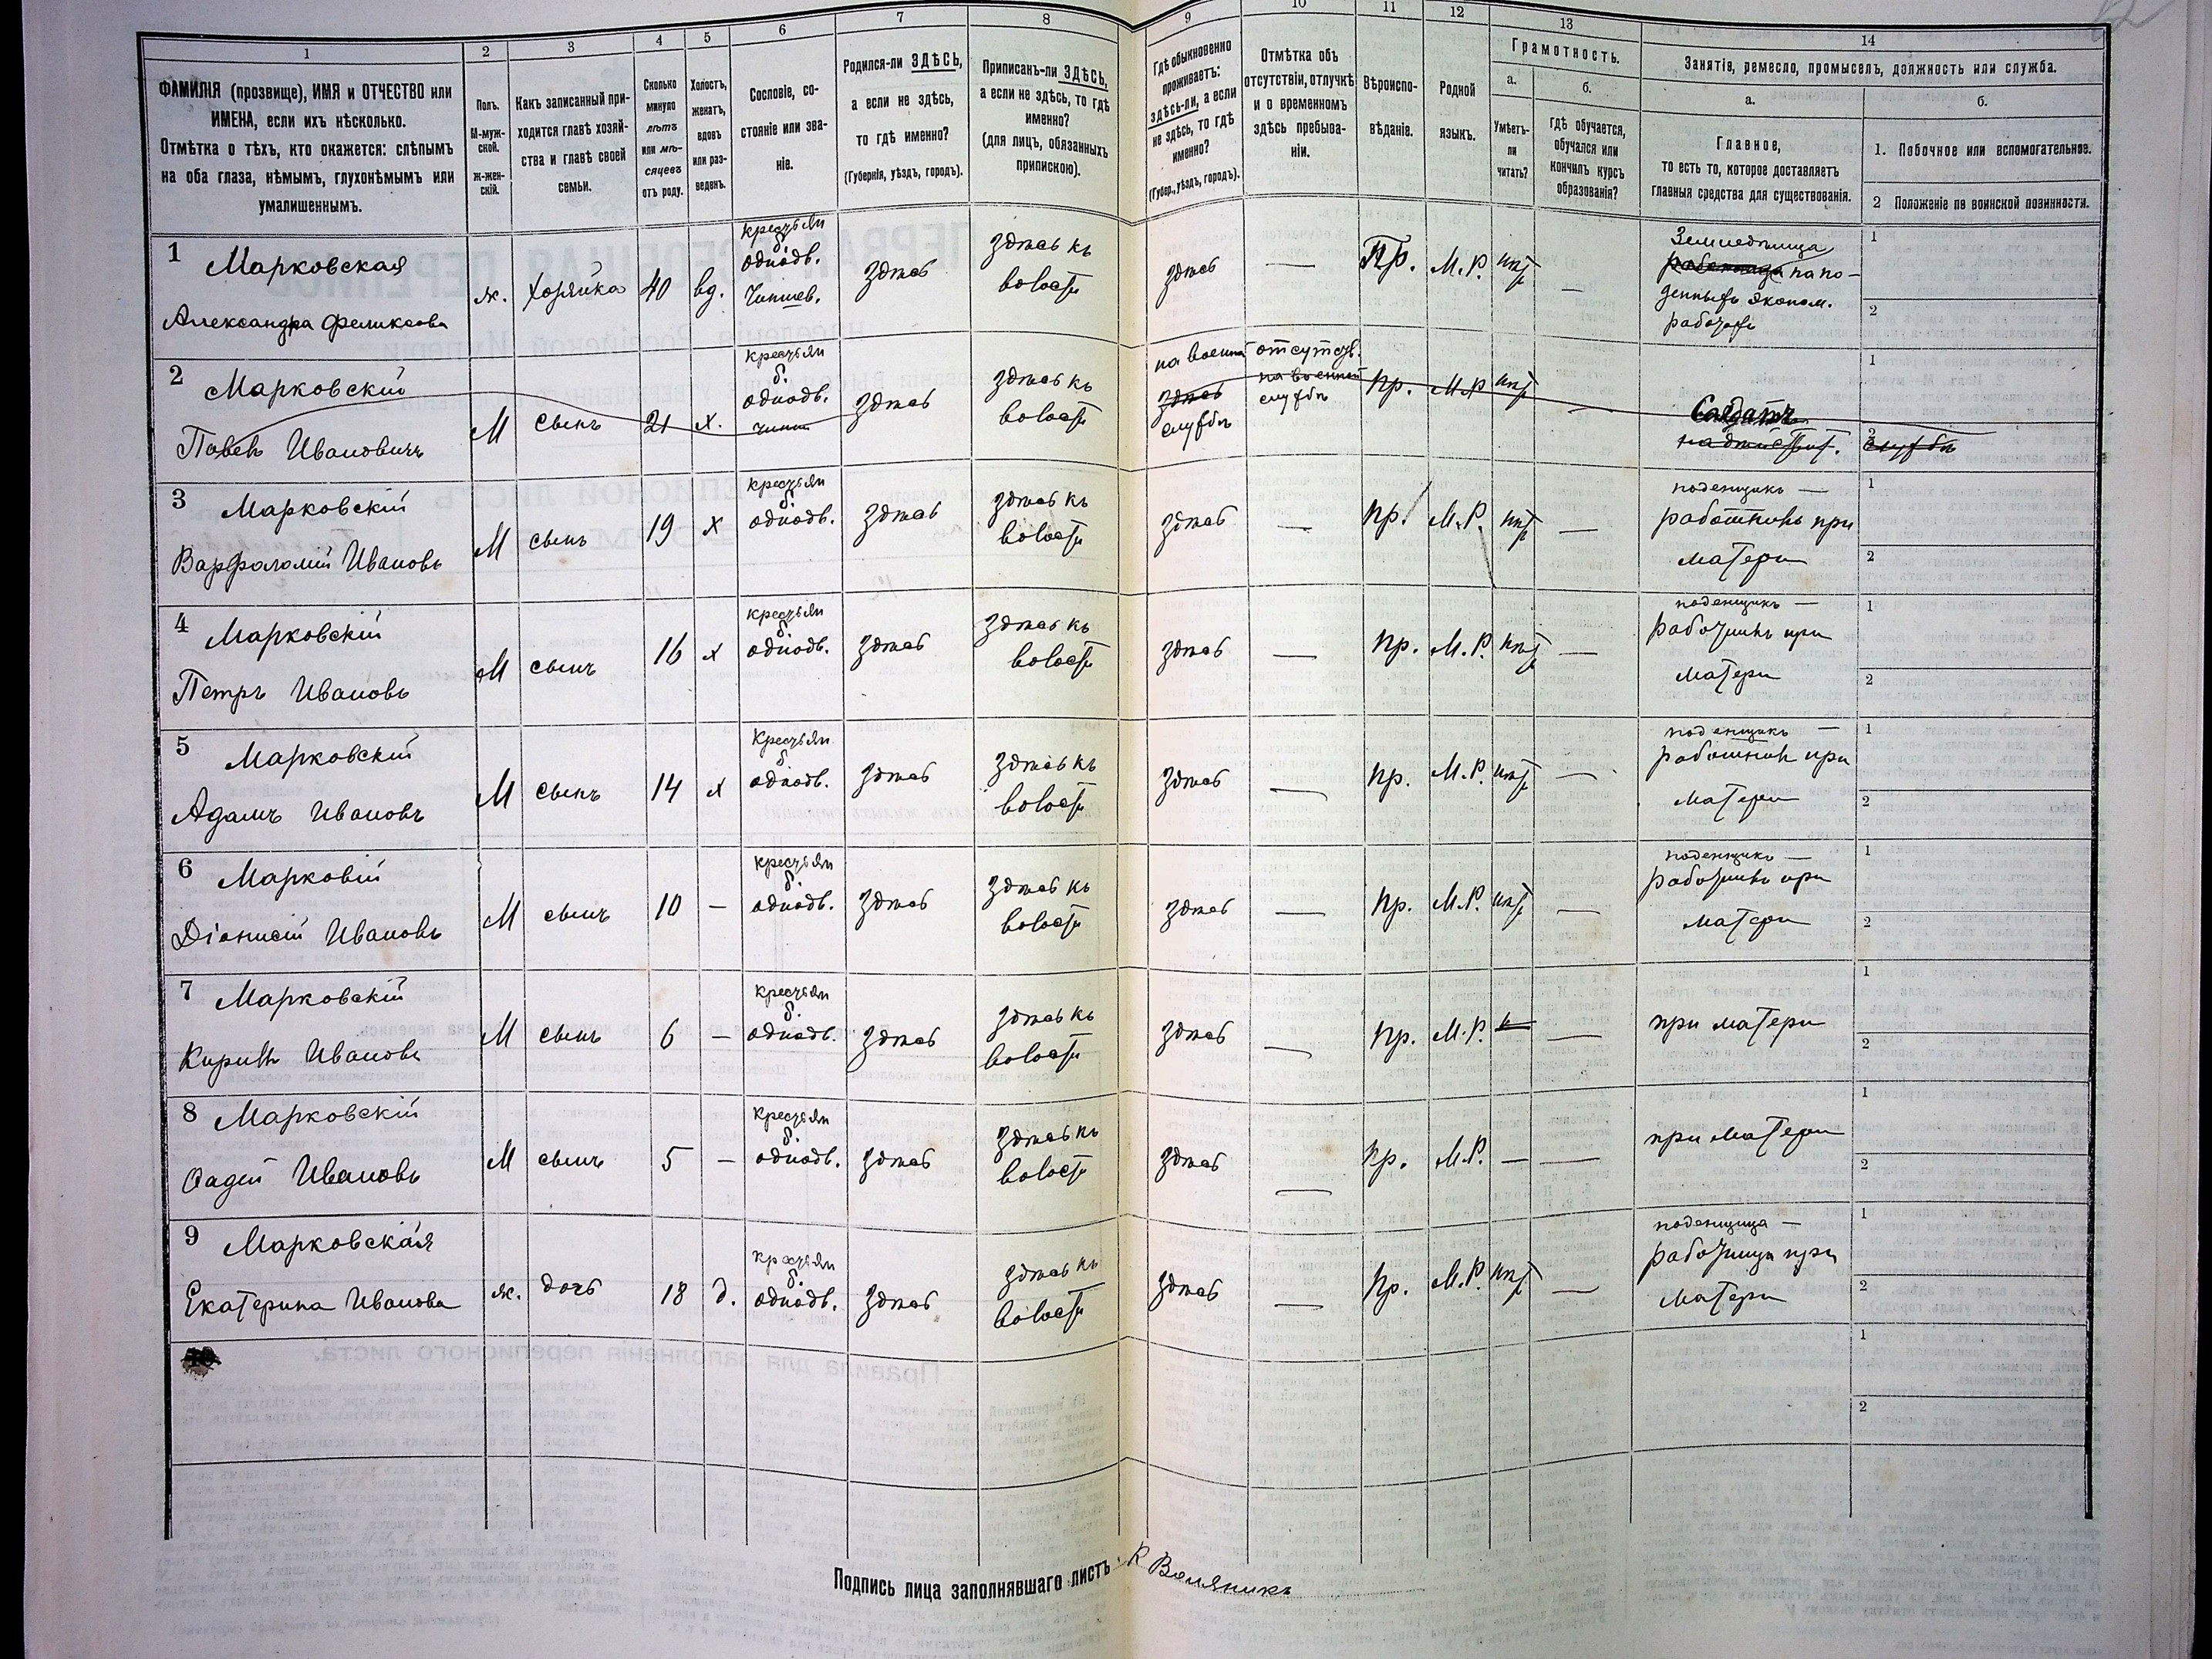 1
2
3
4
5
6
7
8
9
10
11
12
13
14
ФАМИЛІЯ (прозвище), ИМЯ и ОТЧЕСТВО или
ИМЕНА, если ихъ нѣсколько.
Отмѣтка о тѣхъ, кто окажется: слѣпымъ
на оба глаза, нѣмымъ, глухонѣмымъ или
умалишеннымъ.
Полъ.
М-муж-
ской.
ж-жен-
скій.
Какъ записанный при-
ходится главѣ хозяй-
ства и главѣ своей
семьи.
Сколько
минуло
лѣтъ
или мѣ-
сяцевъ
отъ роду.
Холостъ,
женатъ,
вдовъ
или раз-
веденъ.
Сословіе, со-
стояніе или зва-
ніе.
Родился-ли ЗДѢСЬ,
а если не здѣсь,
то гдѣ именно?
(Губернія, уѣздъ, городъ).
Приписанъ-ли ЗДѢСЬ,
а если не здѣсь, то гдѣ
именно?
(для лицъ, обязанныхъ
припискою).
Гдѣ обыкновенно
проживаетъ:
здѣсь-ли, а если
не здѣсь, то гдѣ
именно?
(Губер., уѣздъ, городъ).
Отмѣтка объ
отсутствіи, отлучкѣ
и о временномъ
здѣсь пребыва-
ніи.
Вѣроиспо-
вѣданіе.
Родной
языкъ.
Грамотность.
а.
Умѣетъ-
ли
читать?
б.
гдѣ обучается,
обучался или
кончилъ курсъ
образованія?
Занятіе, ремесло, промыселъ, должность или служба.
а.
Главное,
то есть то, которое доставляетъ
главныя средства для существованія.
б.
1. Побочное или вспомогательное.
2 Положеніе по воинской повинности.
1
Марковская
Александра Феликсова
ж.
хозяйка
40
вд.
крестьян
б.
однодв.
Чиншев.
здѣсь
здѣсь къ
волости
здѣсь
—
Пр.
М.Р.
нѣт
—
Земледѣлица
на по-
денныхъ эконом.
работахъ
1
2
2
Марковскій
Павелъ Ивановичъ
М
сынъ
21
х.
крестьян
б.
однодв.
чинш
здѣсь
здѣсь къ
волости
на военной
здѣсь
службѣ
отсутств.
на военной
службѣ
Пр.
М.Р
нѣт
—
Солдатъ
1
2
службѣ
3
Марковскій
Варфоломій Ивановъ
М
сынъ
19
х
крестьян
б.
однодв.
здѣсь
здѣсь къ
волости
здѣсь
—
Пр.
М.Р.
нѣт
—
поденщикъ —
работникъ при
матери
1
2
4
Марковскій
Петръ Ивановъ
М
сынъ
16
х
крестьян
б.
однодв.
здѣсь
здѣсь къ
волости
здѣсь
—
Пр.
М.Р.
нѣт
—
поденщикъ —
работникъ при
матери
1
2
5
Марковскій
Адамъ Ивановъ
М
сынъ
14
х
Крестьян
б.
однодв.
здѣсь
здѣсь къ
волости
здѣсь
—
Пр.
М.Р.
нѣт
—
поденщикъ —
работникъ при
матери
1
2
6
Марковій
Діонисій Ивановъ
М
сынъ
10
—
крестьян
б.
однодв.
здѣсь
здѣсь къ
волости
здѣсь
—
Пр.
М.Р.
нѣт
—
поденщикъ —
работникъ при
матери
1
2
7
Марковскій
Кирилъ Ивановъ
М
сынъ
6
—
крестьян
б.
однодв.
здѣсь
здѣсь къ
волости
здѣсь
—
Пр.
М.Р.
—
при матери
1
2
8
Марковскій
Фадей Ивановъ
М
сынъ
5
—
крестьян
б.
однодв.
здѣсь
здѣсь къ
волости
здѣсь
—
Пр.
М.Р.
—
—
при матери
1
2
9
Марковская
Екатерина Иванова
ж.
дочь
18
д.
крестьян
б.
однодв.
здѣсь
здѣсь къ
волости
здѣсь
—
Пр.
М.Р.
нѣт
—
поденщица —
работница при
матери
1
2
10
1
2
Подпись лица заполнявшаго листъ